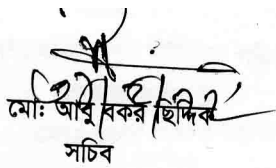 মোঃ আবু বকর ছিদ্দিকী
সচিব